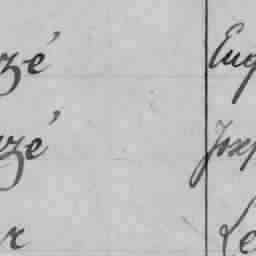 zé Eug
zé Jos
r Le